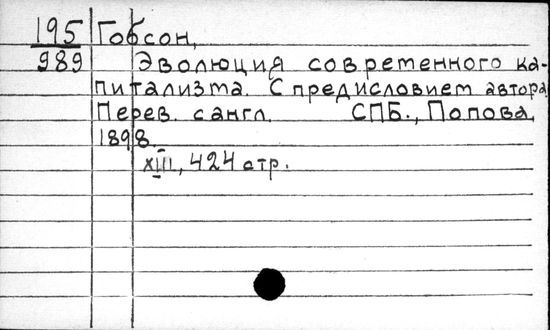 195 Гобсон,
989 Эволюция современного ка-
питализма. С предисловием автора.
Перев. с англ. СПБ., Попова,
1898.
XIII, 424 стр.